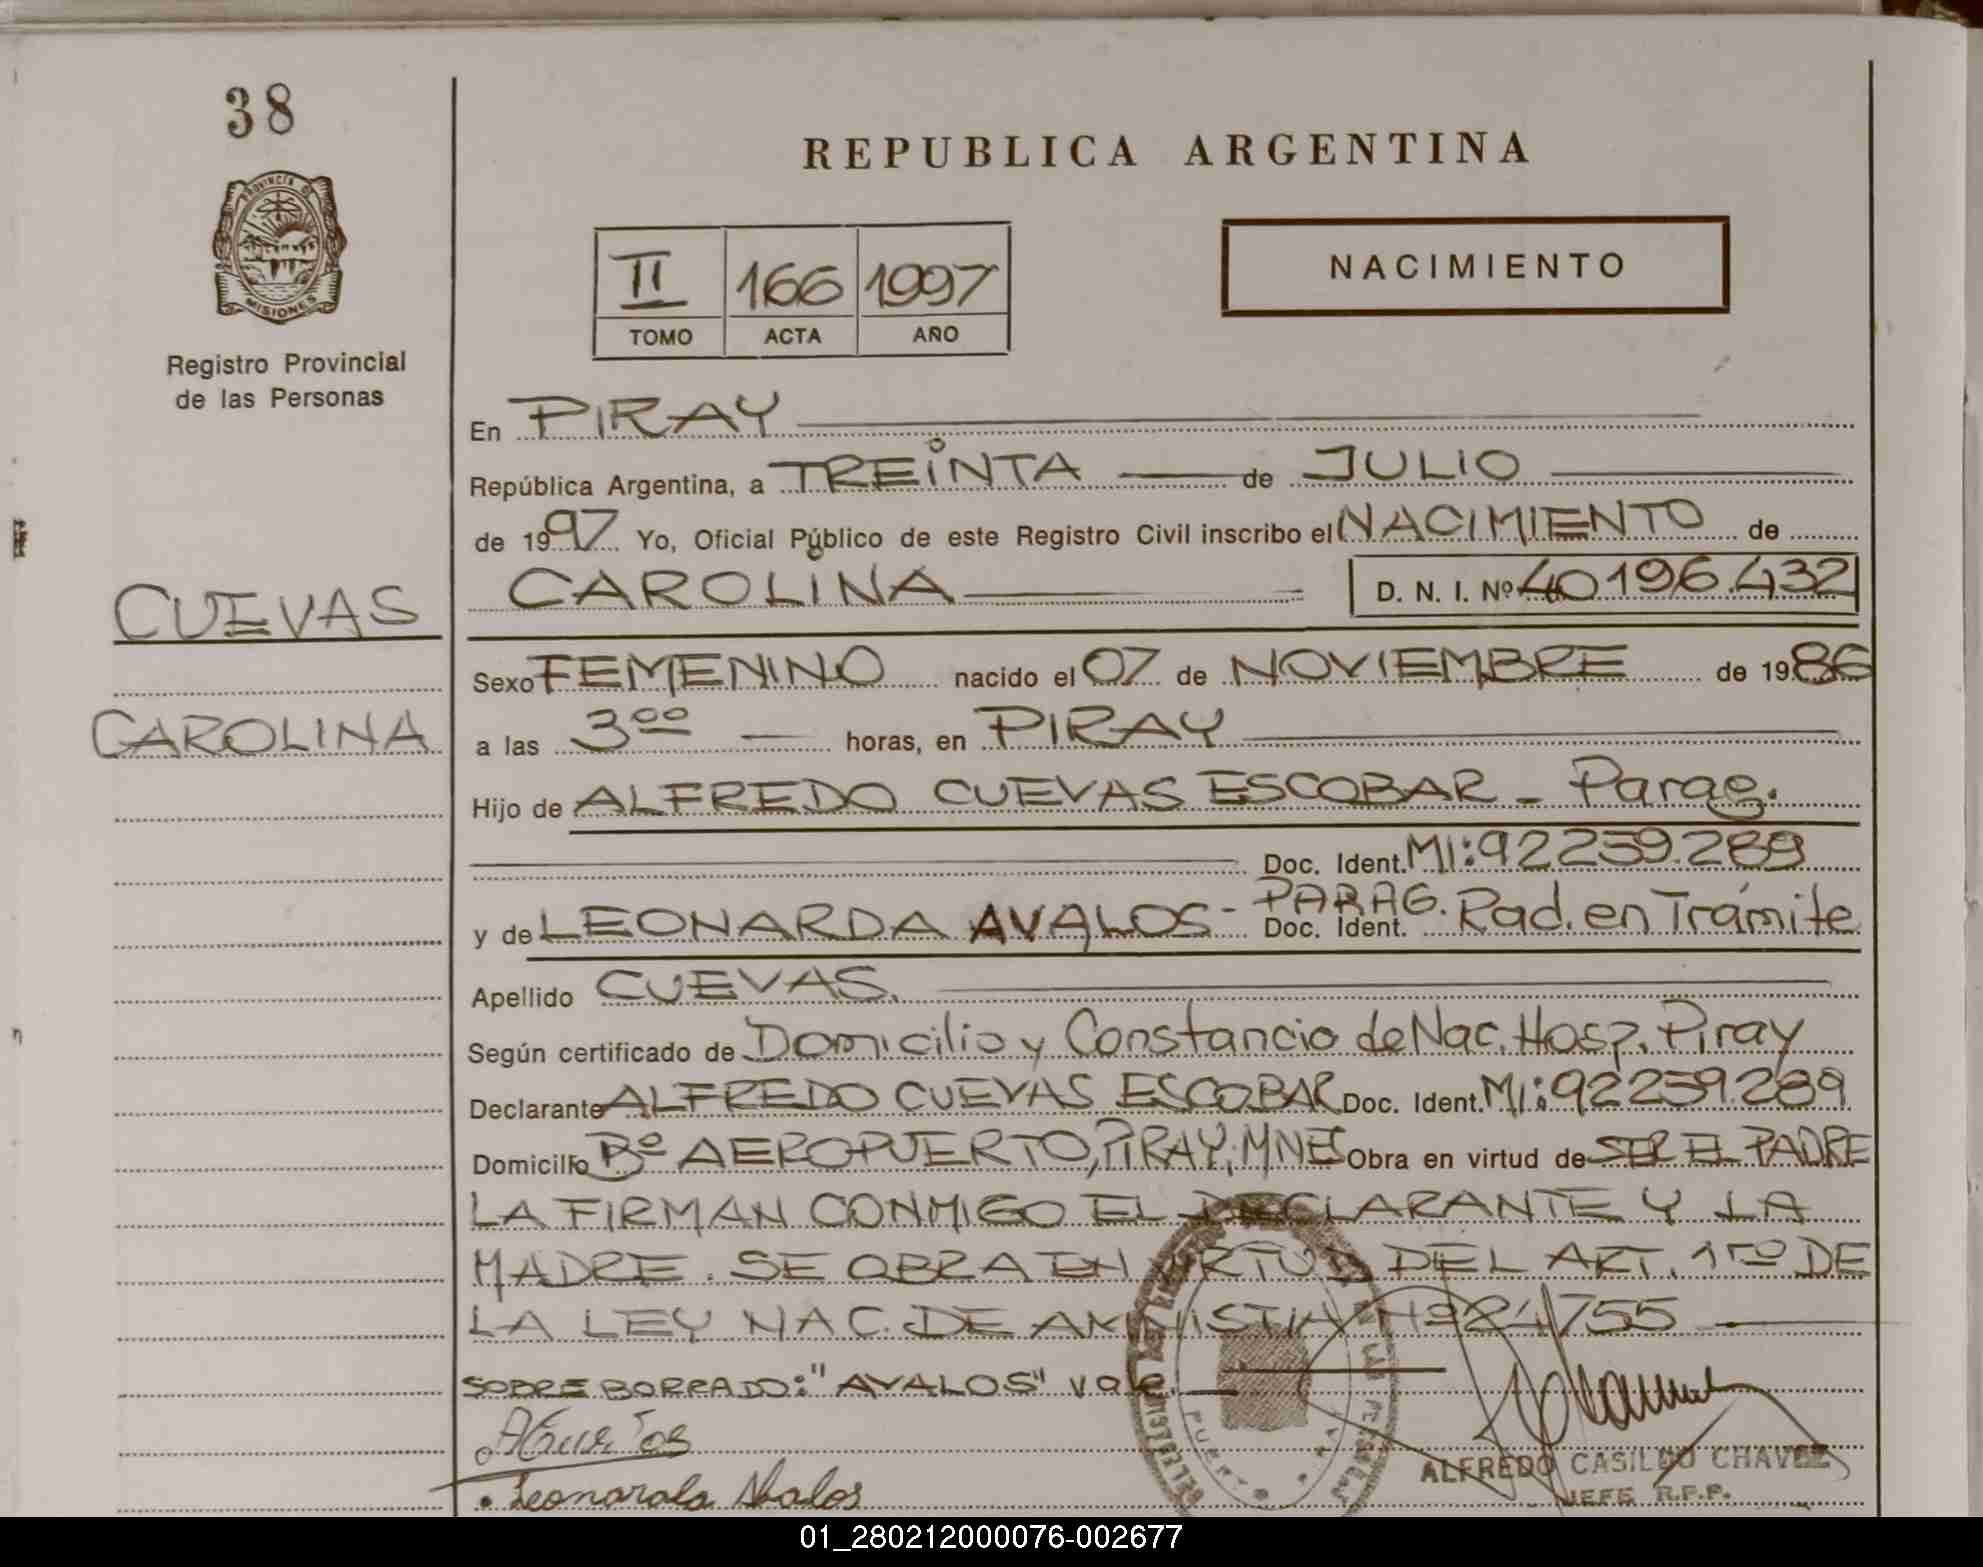 38
PROVINCIA DE
MISIONES
Registro Provincial
de las Personas
CUEVAS
CAROLINA
REPUBLICA ARGENTINA
II 166 1997
TOMO ACTA AÑO
NACIMIENTO
En PIRAY
República Argentina, a TREINTA de JULIO
de 1997 Yo, Oficial Público de este Registro Civil inscribo el NACIMIENTO de
CAROLINA D. N. I. Nº 40196.432
Sexo FEMENINO nacido el 07 de NOVIEMBRE de 1986
a las 3 00 horas, en PIRAY
Hijo de ALFREDO CUEVAS ESCOBAR - Parag.
Doc. Ident. MI: 92239.289
y de LEONARDA AVALOS - PARAG. Doc. Ident. Rad. en Trámite
Apellido CUEVAS.
Según certificado de Domicilio y Constancio de Nac. Hosp. Piray
Declarante ALFREDO CUEVAS ESCOBAR Doc. Ident. MI: 92239.289
Domicilio Bº AEROPUERTO, PIRAY, MNES Obra en virtud de SER EL PADRE
LA FIRMAN CONMIGO EL DECLARANTE Y LA
MADRE. SE OBRA EN VIRTUD DEL ART. 1ro DE
LA LEY NAC. DE AMNISTIA Nº 24755
SOBRE BORRADO: "AVALOS" vale.
Leonarda Abalos
ALFREDO CASILDO CHAVEZ
JEFE R.P.P.
01_280212000076-002677